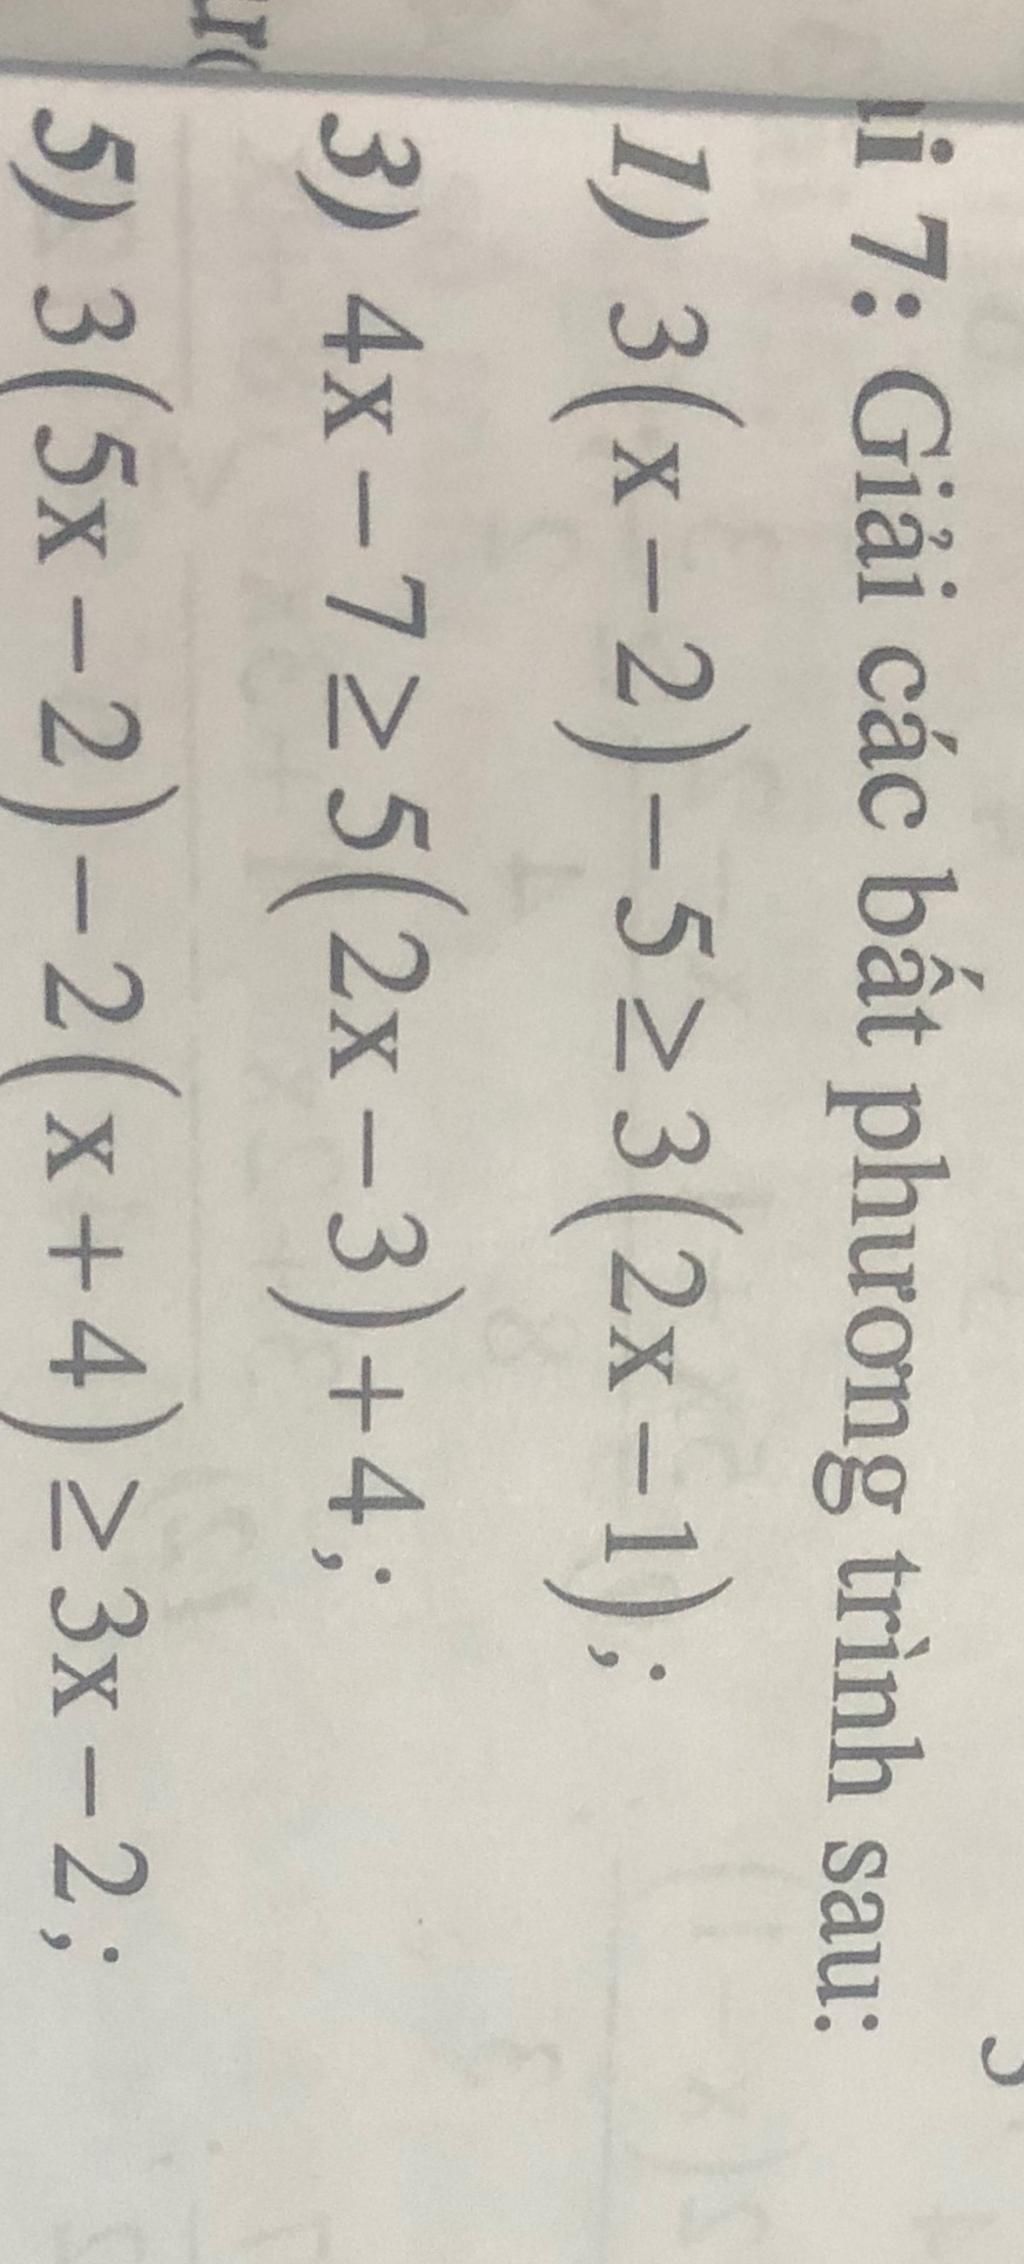 7: Giải các bất phương trình sau:
1) 3(x – 2) – 5 ≥ 3(2x – 1);
3) 4x – 7 ≥ 5(2x – 3) + 4;
5) 3(5x – 2) – 2(x + 4) ≥ 3x – 2;